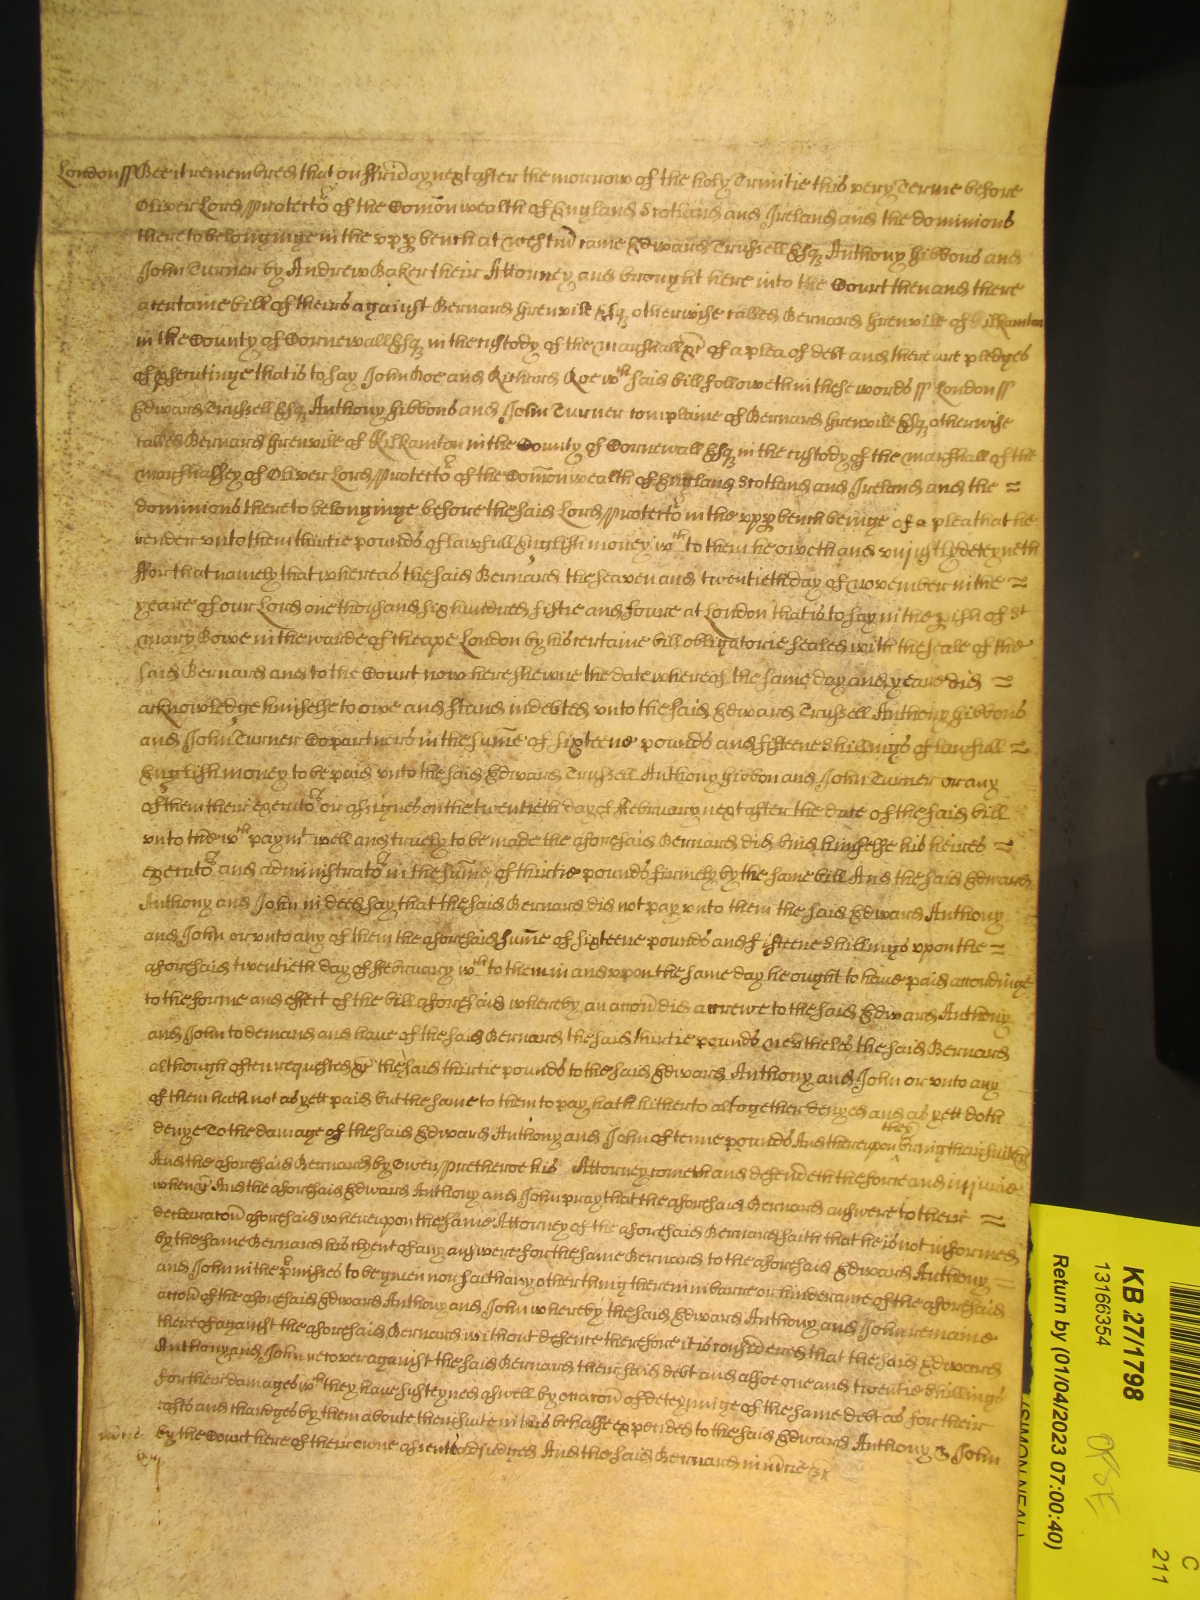 London ss Bee it remembred that on ffriday next after the morrow of the holy Trinitie this very Terme before
Oliver Lord Protector of the Comon wealth of England Scotland and Ireland and the dominions
thereto belonginge in the upp bench at westm came Edward Trussell Esq Anthony Gibbons and
John Turner by Andrew Baker their Attorney and brought here into the Court then and there
a certaine bill of theirs against Bernard Grenvile Esq otherwise called Bernard Grenvile of Kilkamton
in the County of Cornewall Esq in the custody of the marshall &c of a plea of debt and there are pledges
of psecutinge that is to say John Doe and Richard Roe wch said bill followeth in these words ss London ss
Edward Trussell Esq Anthony Gibbons and John Turner complaine of Bernard Grenvile Esq otherwise
called Bernard Grenvile of Kilkamton in the County of Cornewall Esq in the custody of the marshall of the
marshalsey of Oliver Lord Protector of the Comon wealth of England Scotland and Ireland and the =
dominions thereto belonginge before the said Lord Protector in the upp bench beinge of a plea that he
render unto them thirtie pounds of lawfull English money wch to them he oweth and unjustly deteyneth
ffor that namely that whereas the said Bernard the seaven and twentieth day of November in the =
yeare of our Lord one thousand six hundred fiftie and foure at London that is to say in the pish of St
Mary Bowe in the warde of Cheape London by his certaine bill obligatorie sealed with the seale of the
said Bernard and to the Court now here shewne the date whereof the same day and yeare did =
acknowledge himselfe to owe and stand indebted unto the said Edward Trussell Anthony Gibbons
and John Turner Copartners in the sume of sixteene pounds and fifteene shillings of lawfull =
English money to be paid unto the said Edward Trussell Anthony Gibbon and John Turner or any
of them their executors or assignes on the twentieth day of ffebruary next after the date of the said bill
unto the wch paymt well and truely to be made the aforesaid Bernard did bind himselfe his heires =
executors and administrators in the sume of thirtie pounds firmely by the same bill And the said Edward
Anthony and John in deed say that the said Bernard did not pay unto them the said Edward Anthony
and John or unto any of them the aforesaid sume of sixteene pounds and fifteene shillings upon the =
aforesaid twentieth day of ffebruary wch to them in and upon the same day he ought to have paid accordinge
to the forme and effect of the bill aforesaid whereby an accon did accrewe to the said Edward Anthony
and John to demand and have of the said Bernard the said thirtie pounds nevtheles the said Bernard
although often requested &c the said thirtie pounds to the said Edward Anthony and John or unto any
of them hath not as yett paid but the same to them to pay hath hitherto altogether denyed and as yett doth
denye To the damage of the said Edward Anthony and John of tenne pounds And thereupon they bring their suite &c
And the aforesaid Bernard by Owen Pretheroe his Attorney cometh and defendeth the force and injurie
when &c And the aforesaid Edward Anthony and John pray that the aforesaid Bernard answere to their =
declaracon aforesaid whereupon the same Attorney of the aforesaid Bernard saith that he is not informed
by the same Bernard his clyent of any answere for the same Bernard to the aforesaid Edward Anthony =
and John in the pmisses to be given nor saith any other thing therein in barre or hinderance of the aforesaid
accon of the aforesaid Edward Anthony and John whereby the said Edward Anthony and John remaine
thereof against the aforesaid Bernard without defence therefore it is considered that the said Edward
Anthony and John recover against the said Bernard their said debt and alsoe one and twentie shillings
for their damages wch they have susteyned aswell by occacon of deteyninge of the same debt as for their
costs and chardges by them aboute their suite in this behalfe expended to the said Edward Anthony & John
by the Court here of their owne assent adjudged And the said Bernard in mcie &c
KB 27/1798
13166354
Return by (01/04/2023 07:00:40)
(SIMON NEAL)
C
211